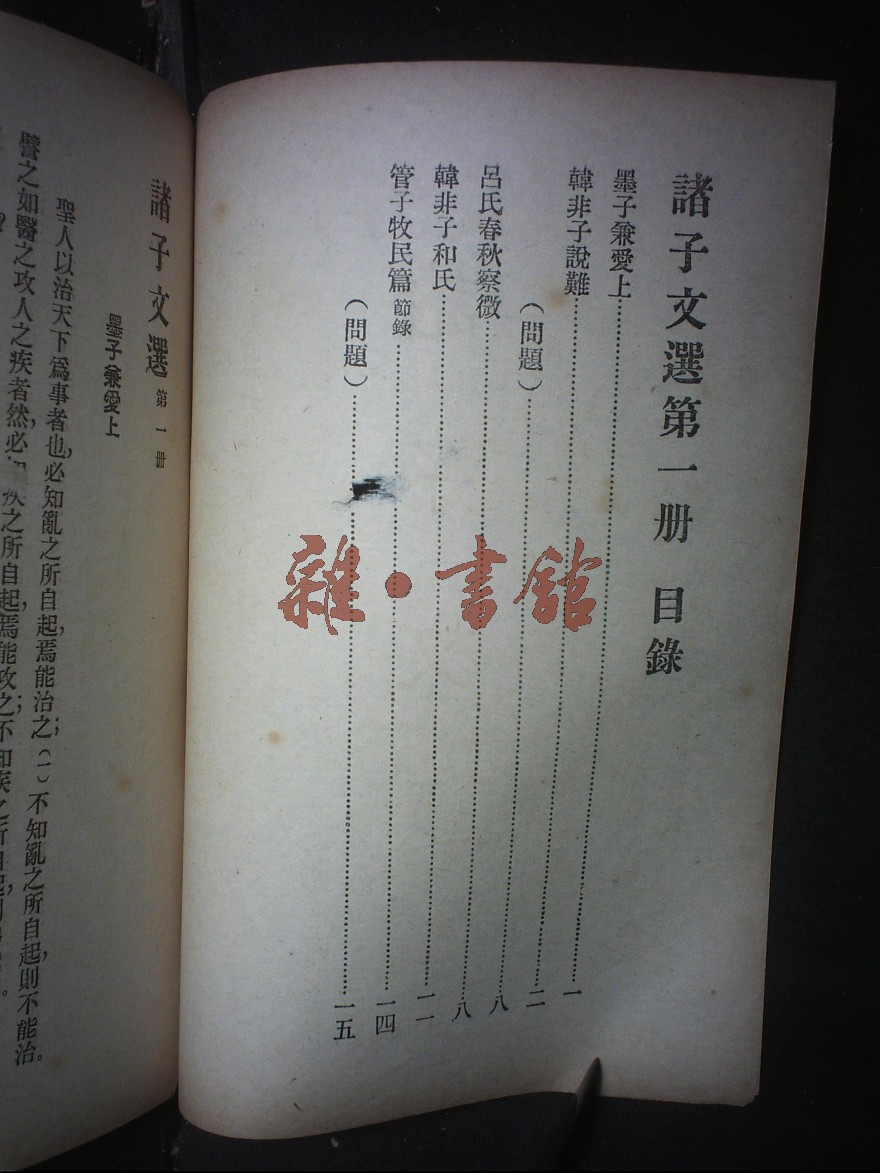 諸子文選第一册 目錄
墨子兼愛上……一
韓非子說難……二
（問題）……八
呂氏春秋察微……八
韓非子和氏……一一
管子牧民篇 節錄……一四
（問題）……一五
雜・書館
諸子文選 第一册
墨子兼愛上
聖人以治天下爲事者也,必知亂之所自起,焉能治之;(一)不知亂之所自起,則不能治。
譬之如醫之攻人之疾者然,必 疾之所自起,焉能攻之;不知疾之所自起,